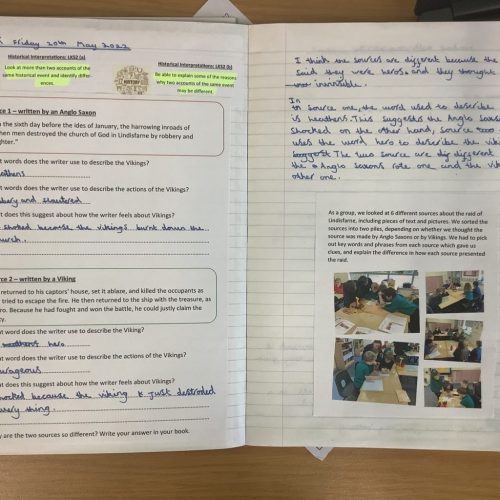 Friday 20th May 2022
Historical Interpretations: LKS2 (a)
Look at more than two accounts of the
same historical event and identify differ-
ences.
HISTORY
Historical Interpretations: LKS2 (b)
Be able to explain some of the reasons
why two accounts of the same event
may be different.
rce 1 – written by an Anglo Saxon
the sixth day before the ides of January, the harrowing inroads of
then men destroyed the church of God in Lindisfarne by robbery and
ghter."
at words does the writer use to describe the Vikings?
eathens
at words does the writer use to describe the actions of the Vikings?
bery and
at does this suggest about how the writer feels about Vikings?
shocked because the vikings burnt down the
church.
rce 2 – written by a Viking
returned to his captors' house, set it ablaze, and killed the occupants as
tried to escape the fire. He then returned to the ship with the treasure, as
ero. Because he had fought and won the battle, he could justly claim the
ty.
at word does the writer use to describe the Viking?
heathens hero
at words does the writer use to describe the actions of the Vikings?
urageous
at does this suggest about how the writer feels about Vikings?
hocked because the viking just destroded
every thing.
y are the two sources so different? Write your answer in your book.
I think the sources are different because the
said they were heros, and they thought
not
In
source one, the word used to describe
is heathens. This suggests the Anglo Saxons
shocked on the other hand, source two
uses the word hero to describe the vik
suggest The two source are different
the Anglo Saxons rote one and the vik
other one.
As a group, we looked at 6 different sources about the raid of
Lindisfarne, including pieces of text and pictures. We sorted the
sources into two piles, depending on whether we thought the
source was made by Anglo Saxons or by Vikings. We had to pick
out key words and phrases from each source which gave us
clues, and explain the difference in how each source presented
the raid.